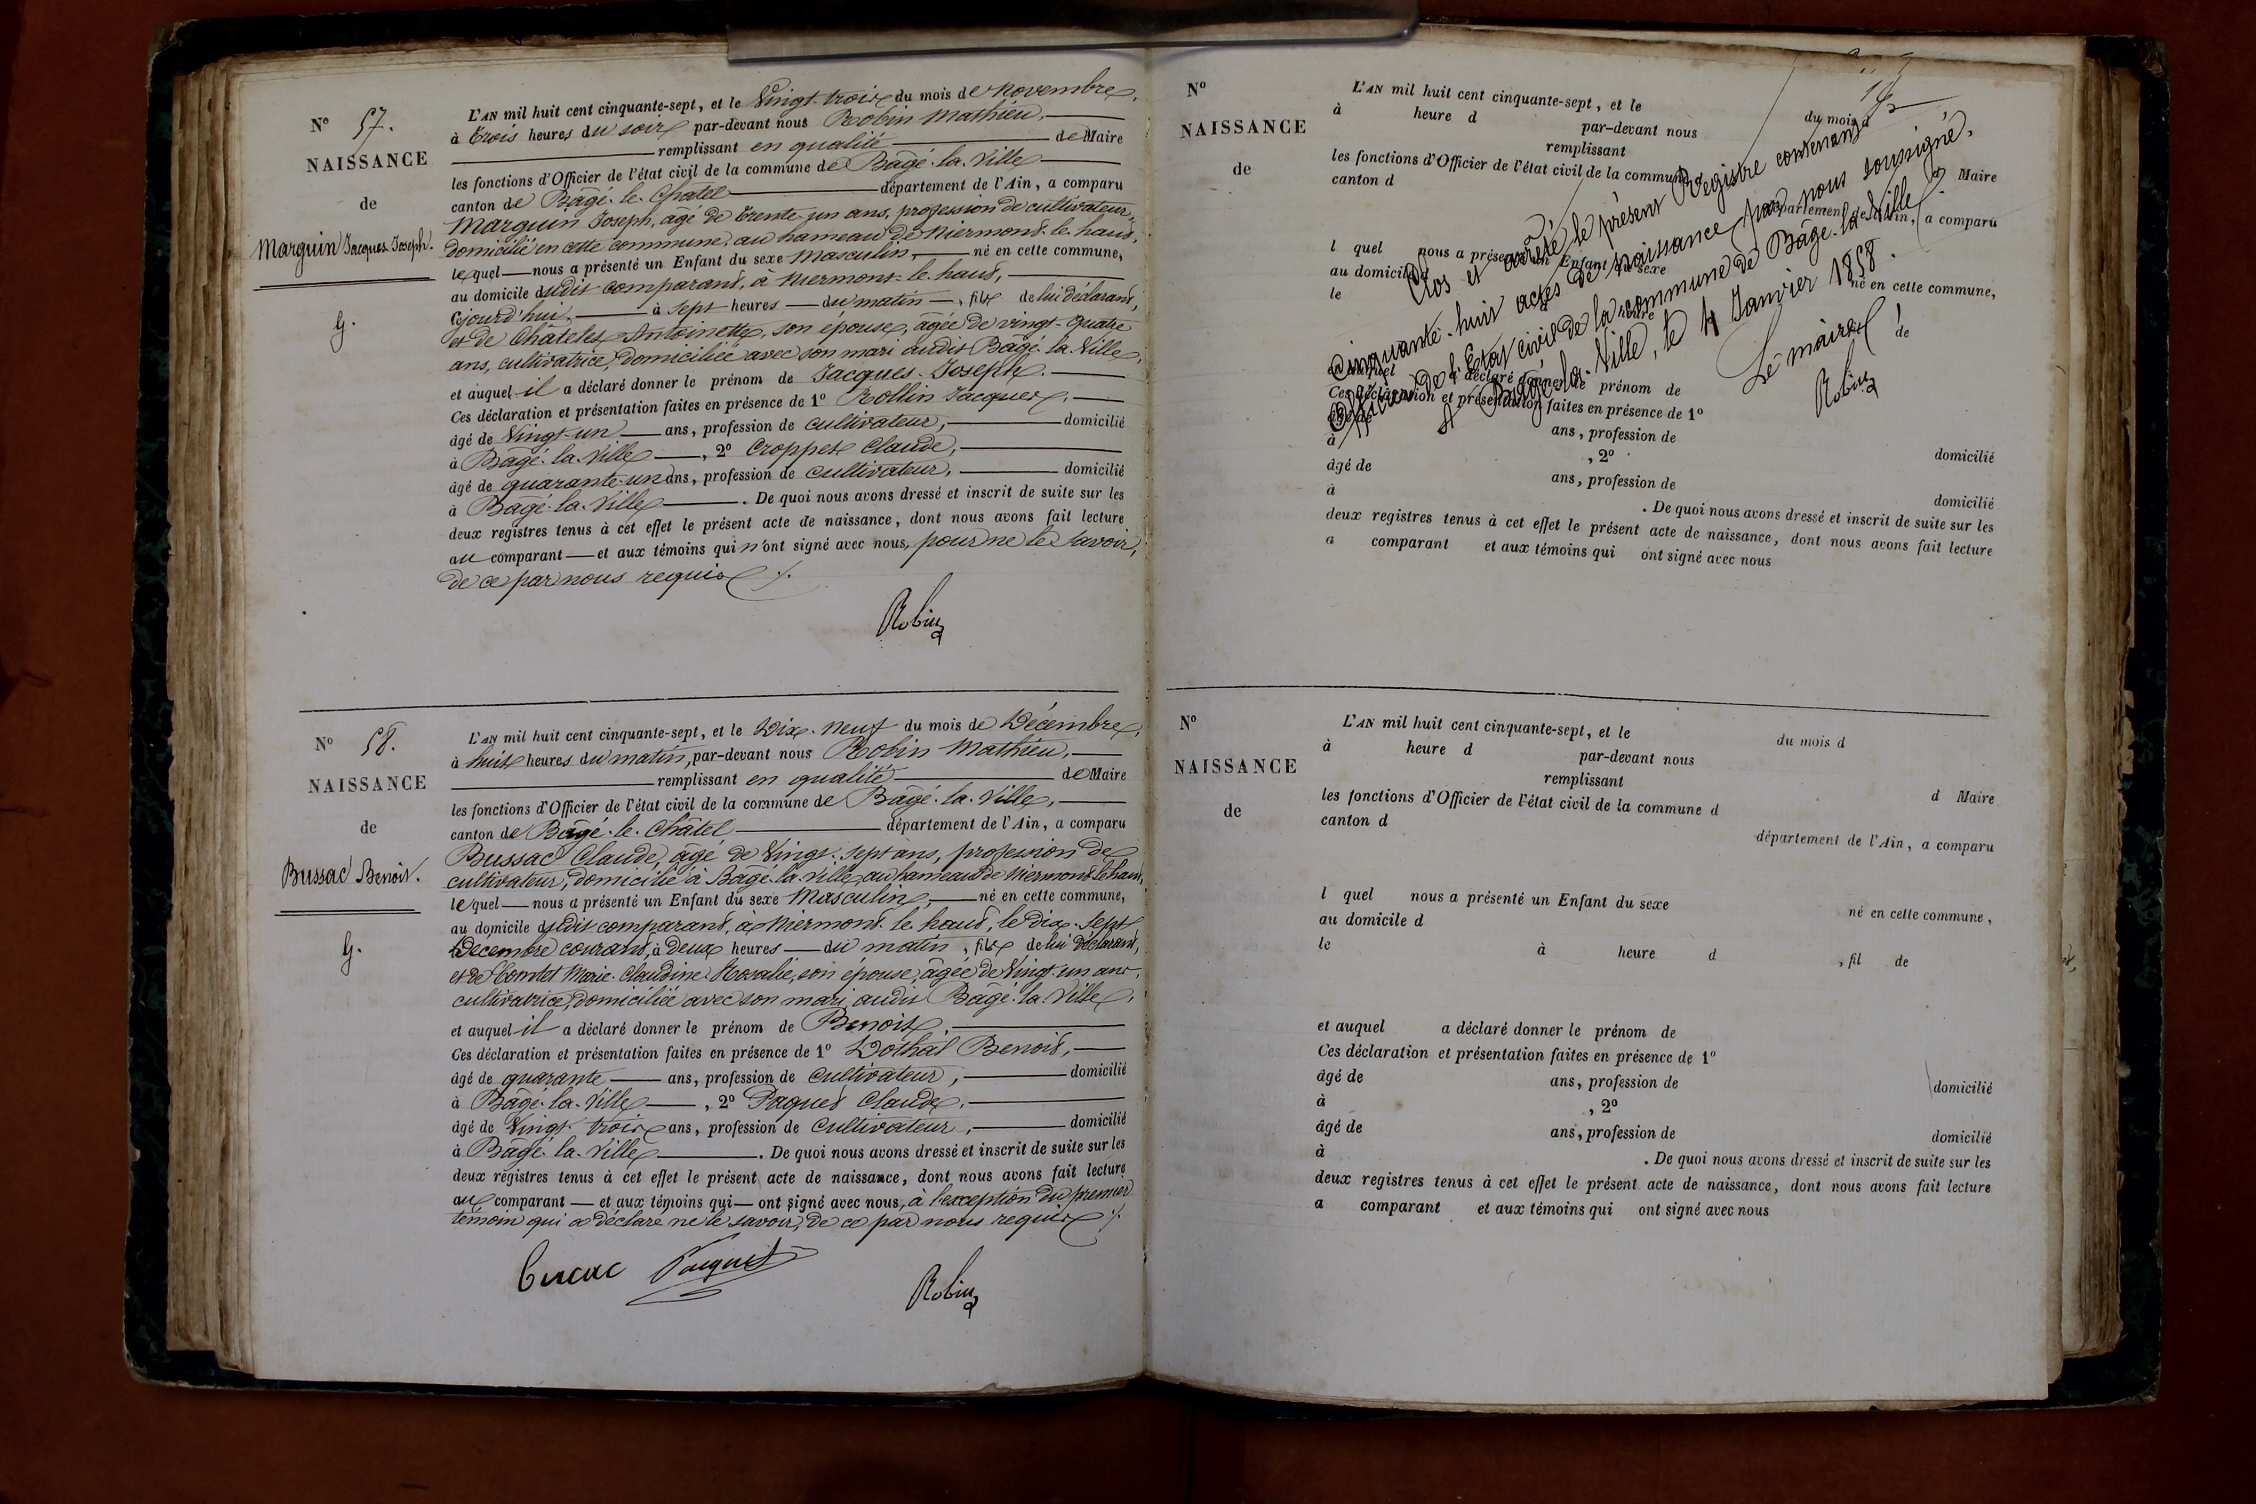 N° 57.
NAISSANCE
de
Marguin Jacques Joseph.
G.
L'AN mil huit cent cinquante-sept, et le Vingt-trois du mois de Novembre,
à trois heures du soir par-devant nous Robin Mathieu,
remplissant en qualité de Maire
les fonctions d'Officier de l'état civil de la commune de Bâgé-la-Ville
canton de Bâgé-le-Chatel département de l'Ain, a comparu
Marguin Joseph, âgé de trente-un ans, profession de cultivateur,
domicilié en cette commune, au hameau de Niermont-le-haut,
lequel nous a présenté un Enfant du sexe Masculin, né en cette commune,
au domicile dudit comparant, à Niermont-le-haut,
Cejourd'hui à sept heures du matin, fils de lui déclarant,
et de Châtelet Antoinette, son épouse, âgée de vingt-quatre
ans, cultivatrice, domiciliée avec son mari audit Bâgé-la-Ville,
et auquel il a déclaré donner le prénom de Jacques-Joseph.
Ces déclaration et présentation faites en présence de 1° Rollin Jacques,
âgé de Vingt-un ans, profession de cultivateur, domicilié
à Bâgé-la-Ville, 2° Croppet Claude,
âgé de quarante-un ans, profession de cultivateur, domicilié
à Bâgé-la-Ville. De quoi nous avons dressé et inscrit de suite sur les
deux registres tenus à cet effet le présent acte de naissance, dont nous avons fait lecture
au comparant et aux témoins qui n'ont signé avec nous, pour ne le savoir,
de ce par nous requis ./.
Robin
N° 58.
NAISSANCE
de
Bussac Benoit.
G.
L'AN mil huit cent cinquante-sept, et le Dix-neuf du mois de Décembre,
à huit heures du matin, par-devant nous Robin Mathieu,
remplissant en qualité de Maire
les fonctions d'Officier de l'état civil de la commune de Bâgé-la-Ville,
canton de Bâgé-le-Châtel département de l'Ain, a comparu
Bussac Claude, âgé de Vingt-sept ans, profession de
cultivateur, domicilié à Bâgé-la-Ville, au hameau de Niermont le haut,
lequel nous a présenté un Enfant du sexe Masculin, né en cette commune,
au domicile dudit comparant, à Niermont-le-haut, le dix-sept
Decembre courant, à Deux heures du matin, fils de lui déclarant,
et de Comtet Marie-Claudine-Rosalie, son épouse, âgée de Vingt-un ans,
cultivatrice, domiciliée avec son mari audit Bâgé-la-Ville,
et auquel il a déclaré donner le prénom de Benoit,
Ces déclaration et présentation faites en présence de 1° Dothal Benoit,
âgé de quarante ans, profession de cultivateur, domicilié
à Bâgé-la-Ville, 2° Paquet Claude,
âgé de Vingt-trois ans, profession de cultivateur, domicilié
à Bâgé-la-Ville. De quoi nous avons dressé et inscrit de suite sur les
deux registres tenus à cet effet le présent acte de naissance, dont nous avons fait lecture
au comparant et aux témoins qui ont signé avec nous, à l'exception du premier
témoin qui a déclaré ne le savoir, de ce par nous requis ./.
Paquet
Robin
N°
NAISSANCE
de
L'AN mil huit cent cinquante-sept, et le du mois d
à heure d par-devant nous
remplissant d Maire
les fonctions d'Officier de l'état civil de la commune d
canton d département de l'Ain, a comparu
l quel nous a présenté un Enfant du sexe né en cette commune,
au domicile d
le heure de
et auquel a déclaré donner le prénom de
Ces déclaration et présentation faites en présence de 1°
âgé de ans, profession de domicilié
à , 2°
âgé de ans, profession de domicilié
à . De quoi nous avons dressé et inscrit de suite sur les
deux registres tenus à cet effet le présent acte de naissance, dont nous avons fait lecture
a comparant et aux témoins qui ont signé avec nous
Clos et arrêté le présent Registre contenant
Cinquante-huit actes de naissance par nous soussigné,
Officier de l'Etat civil de la commune de Bâgé-la-Ville.
A Bâgé-la-Ville, le 4 Janvier 1858.
Le maire
Robin
N°
NAISSANCE
de
L'AN mil huit cent cinquante-sept, et le du mois d
à heure d par-devant nous
remplissant d Maire
les fonctions d'Officier de l'état civil de la commune d
canton d département de l'Ain, a comparu
l quel nous a présenté un Enfant du sexe né en cette commune,
au domicile d
le à heure d , fil de
et auquel a déclaré donner le prénom de
Ces déclaration et présentation faites en présence de 1°
âgé de ans, profession de domicilié
à , 2°
âgé de ans, profession de domicilié
à . De quoi nous avons dressé et inscrit de suite sur les
deux registres tenus à cet effet le présent acte de naissance, dont nous avons fait lecture
a comparant et aux témoins qui ont signé avec nous